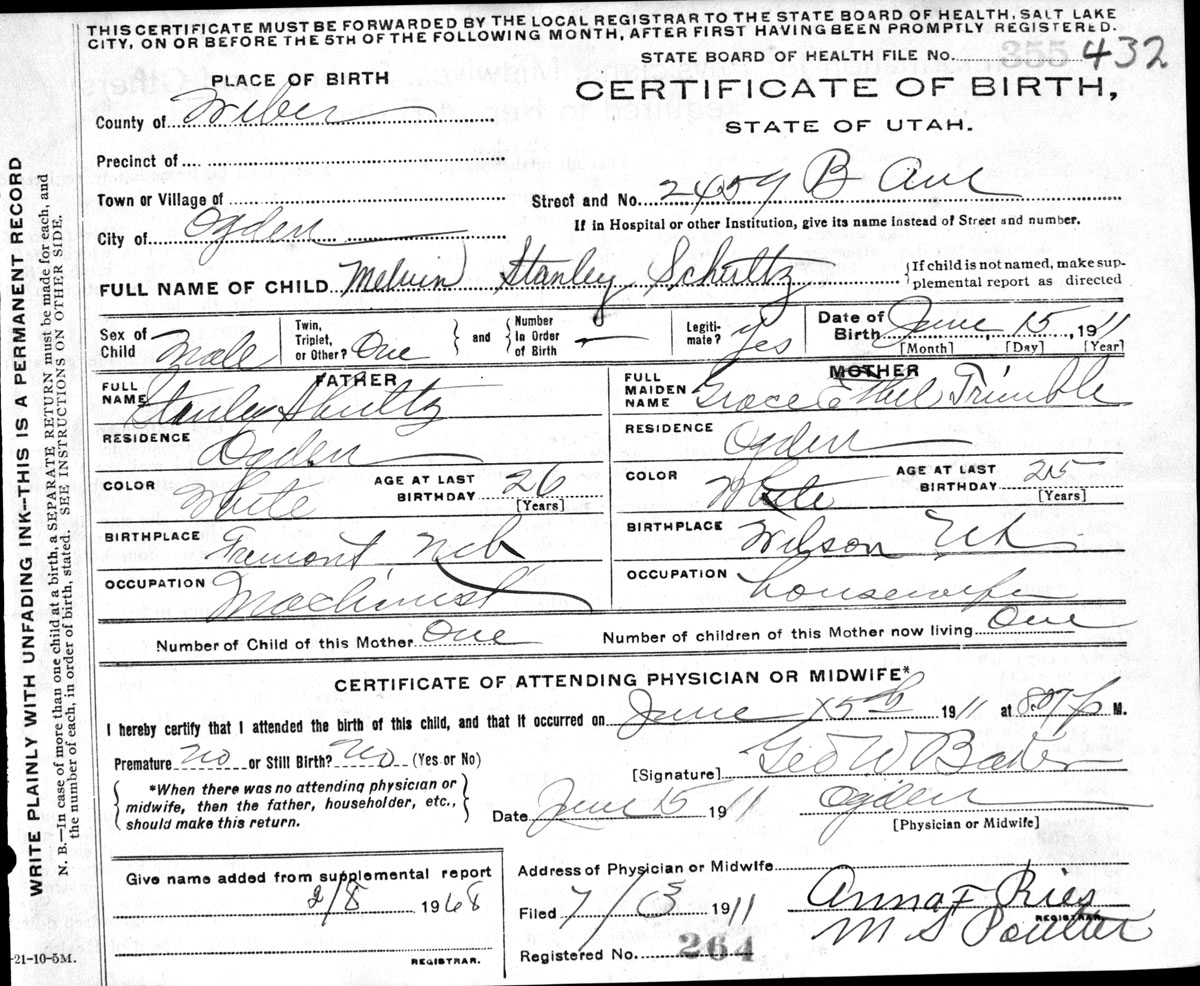 THIS CERTIFICATE MUST BE FORWARDED BY THE LOCAL REGISTRAR TO THE STATE BOARD OF HEALTH, SALT LAKE
CITY, ON OR BEFORE THE 5TH OF THE FOLLOWING MONTH, AFTER FIRST HAVING BEEN PROMPTLY REGISTERED.
STATE BOARD OF HEALTH FILE NO. 432
PLACE OF BIRTH
CERTIFICATE OF BIRTH,
County of Weber
STATE OF UTAH.
Precinct of
Town or Village of
Street and No. 2459 B Ave
If in Hospital or other Institution, give its name instead of Street and number.
City of Ogden
FULL NAME OF CHILD Melvin Stanley Schultz
If child is not named, make sup-
plemental report as directed
Sex of Child Male
Twin, Triplet, or Other? One
and
Number In Order of Birth —
Legiti-mate? yes
Date of Birth June 15, 1911
[Month] [Day] [Year]
FATHER
FULL NAME Stanley Shultz
RESIDENCE Ogden
COLOR White
AGE AT LAST BIRTHDAY 26
[Years]
BIRTHPLACE Fremont, Neb
OCCUPATION Machinist
MOTHER
FULL MAIDEN NAME Grace Ethel Trimble
RESIDENCE Ogden
COLOR White
AGE AT LAST BIRTHDAY 25
[Years]
BIRTHPLACE Wilson Ut
OCCUPATION housewife
Number of Child of this Mother One
Number of children of this Mother now living One
CERTIFICATE OF ATTENDING PHYSICIAN OR MIDWIFE*
I hereby certify that I attended the birth of this child, and that it occurred on June 15th 1911 at P M.
Premature No or Still Birth? No (Yes or No)
[Signature] Geo W Baker
*When there was no attending physician or
midwife, then the father, householder, etc.,
should make this return.
Date June 15 1911 Ogden
[Physician or Midwife]
Give name added from supplemental report
2/8 1968
REGISTRAR.
Address of Physician or Midwife
Filed 7/3 1911 Anna F Ries
REGISTRAR.
M S Poulter
Registered No. 264
-21-10-5M.
WRITE PLAINLY WITH UNFADING INK--THIS IS A PERMANENT RECORD
N. B.—In case of more than one child at a birth, a SEPARATE RETURN must be made for each, and
the number of each, in order of birth, stated. SEE INSTRUCTIONS ON OTHER SIDE.